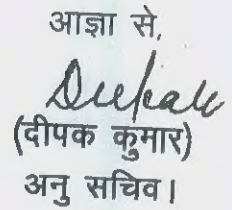 आज्ञा से,
Deepak
(दीपक कुमार)
अनु सचिव।